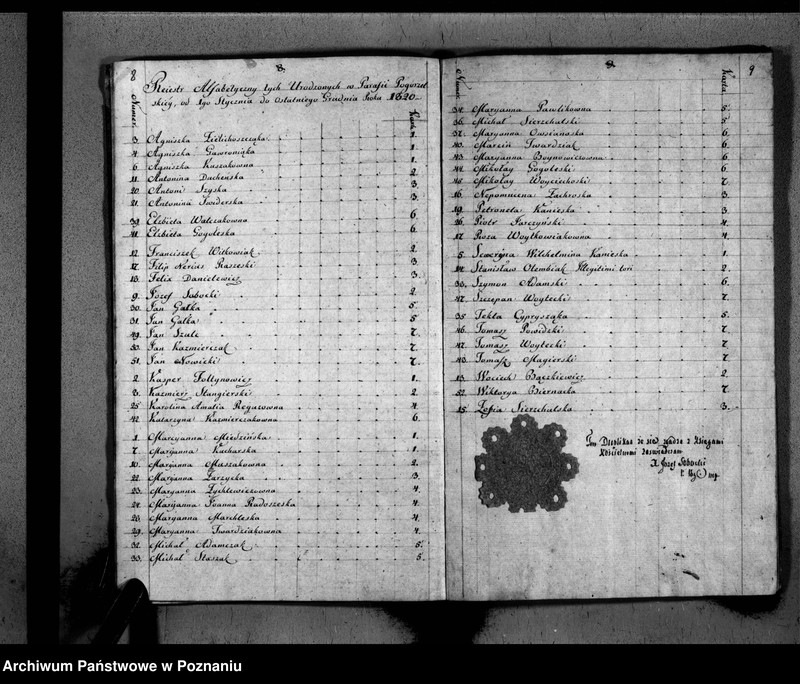 8
8.
Reiestr Alfabetyczny tych Urodzonych w Parafii Pogorzel-
skiey, od 1go Stycznia do ostatniego Grudnia Roku 1820
Numer.
Karta
3 Agniszka 1
4 Agniszka Gawroniąka 1
6 Agniszka Kaszakowna 1.
11 Antonina Dacheńska 2
20 Antoni Szyska 3
21 Antonina Swiderska 3
39 Elżbieta Walczakowna 6
41 Elżbieta Gogoleska 6
12 Franciszek Witkowiak 2
17 Filip Nerius Raszeski 3
18 Felix Danielewicz 3
9. Józef Sobocki 2
30. Jan Gałka 5.
31. Jan Gałka 5
49 Jan Szulc 7.
50 Jan Kazmierczak 7.
51 Jan Nowicki 7.
2 Kasper Foltynowicz 1.
8. Kazmierz Stangierski 2
25 Karolina Amalia 4
42 Katarzyna Kazmierczakowna 6.
1 Maryanna Miedzińska 1
7. Maryanna Kucharska 1
10. Maryanna Maszakowna 2.
22 Maryanna Zarzycka 3
23. Maryanna Zychlewiczowna 4
24 Maryanna Joanna Radoszeska 4.
28 Maryanna Marchleska 4
29 Maryanna Twardziakowna 4
32 Michał Adamczak 5.
33. Michał Staszak 5.
8.
9
Numer
Karta
34. Maryanna Pawlikowna 5.
36. Michał Sierzchulski 5
37. Maryanna Owsianoska 6
40. Marcin Twardziak 6.
43. Maryanna Boynowiczowna 6
44 Mikołay Gogoleski 6
45 Mikołay Woyciechoski 7.
16 Nepomucena Zachroska 3
19. Petronela Kanieska 3
26 Piotr Jarczyński 4
27 Roza Woytkowiakowna 4
5. Seweryna Wilchelmina Kanieska 1.
14 Stanisław Olembiak Illegitimi tori 2.
38. Szymon Adamski 6.
47. Szczepan Woytecki 7
35 Tekla Cyprysząka 5.
46. Tomasz Powidzki 7
47 Tomasz Woytecki 7.
48. Tomasz Magierski 7
13 Woyciech Bączkiewicz 2
52. Wiktorya Biernacka 7.
15 Zofia Sierzchulska 3.
Ten Duplikat że się zgadza z Księgami
Kościelnemi zaswiadczam
X Józef Sobocki
Archiwum Państwowe w Poznaniu